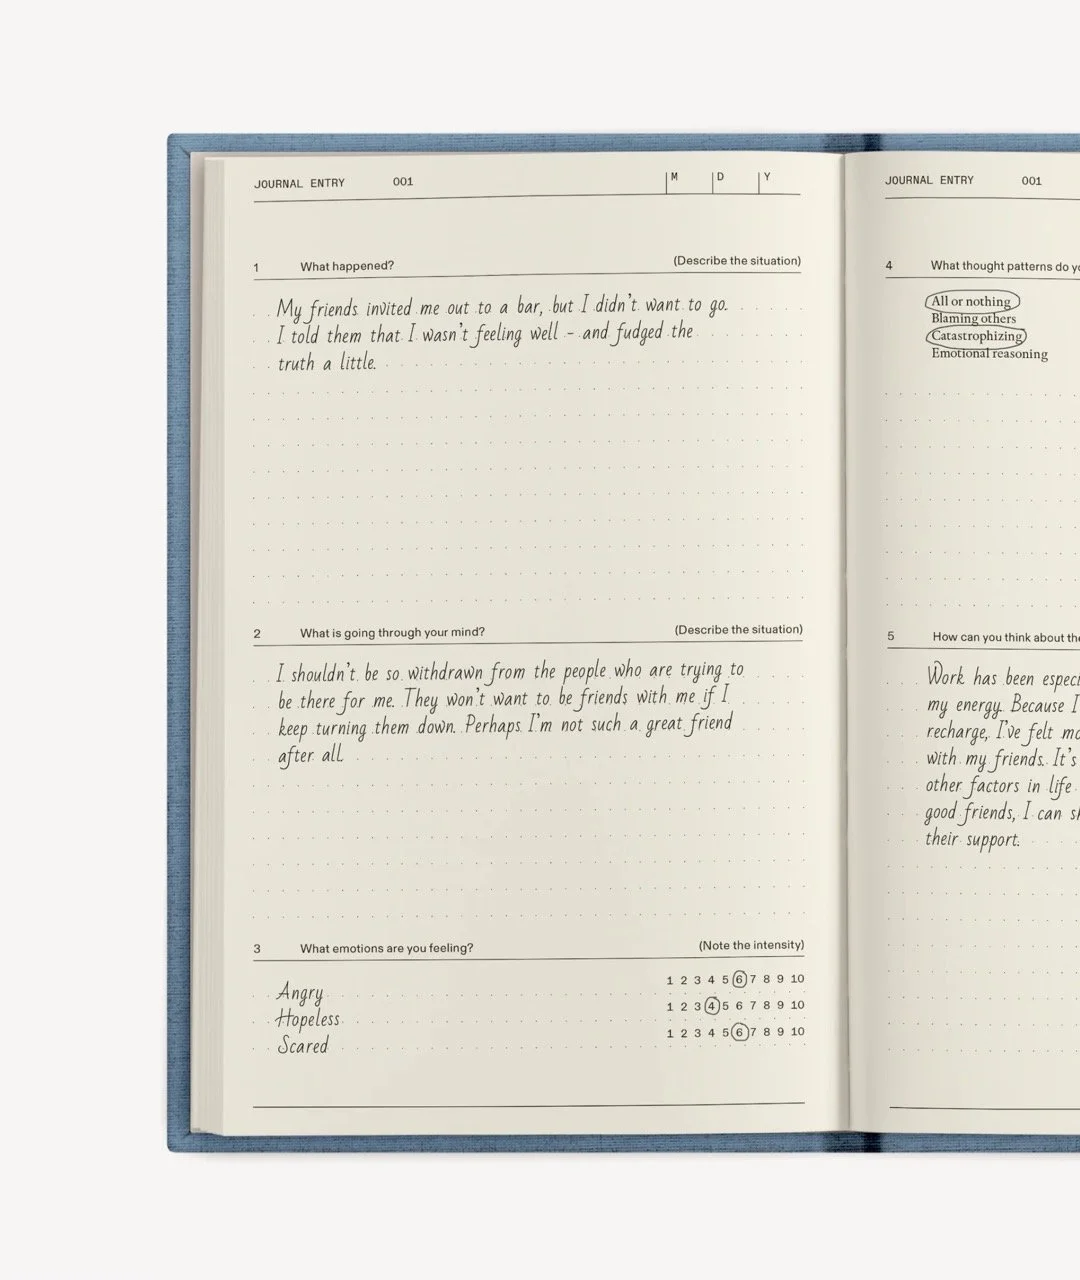 JOURNAL ENTRY 001 M D Y
1 What happened? (Describe the situation)
My friends invited me out to a bar, but I didn't want to go.
I told them that I wasn't feeling well - and fudged the
truth a little.
2 What is going through your mind? (Describe the situation)
I shouldn't be so withdrawn from the people who are trying to
be there for me. They won't want to be friends with me if I
keep turning them down. Perhaps I'm not such a great friend
after all.
3 What emotions are you feeling? (Note the intensity)
Angry 1 2 3 4 5 6 7 8 9 10
Hopeless 1 2 3 4 5 6 7 8 9 10
Scared 1 2 3 4 5 6 7 8 9 10
JOURNAL ENTRY 001
4 What thought patterns do
All or nothing
Blaming others
Catastrophizing
Emotional reasoning
5 How can you think about
Work has been
my energy. Because I
recharge, I've felt
with my friends. It's
other factors in life
good friends, I can
their support.